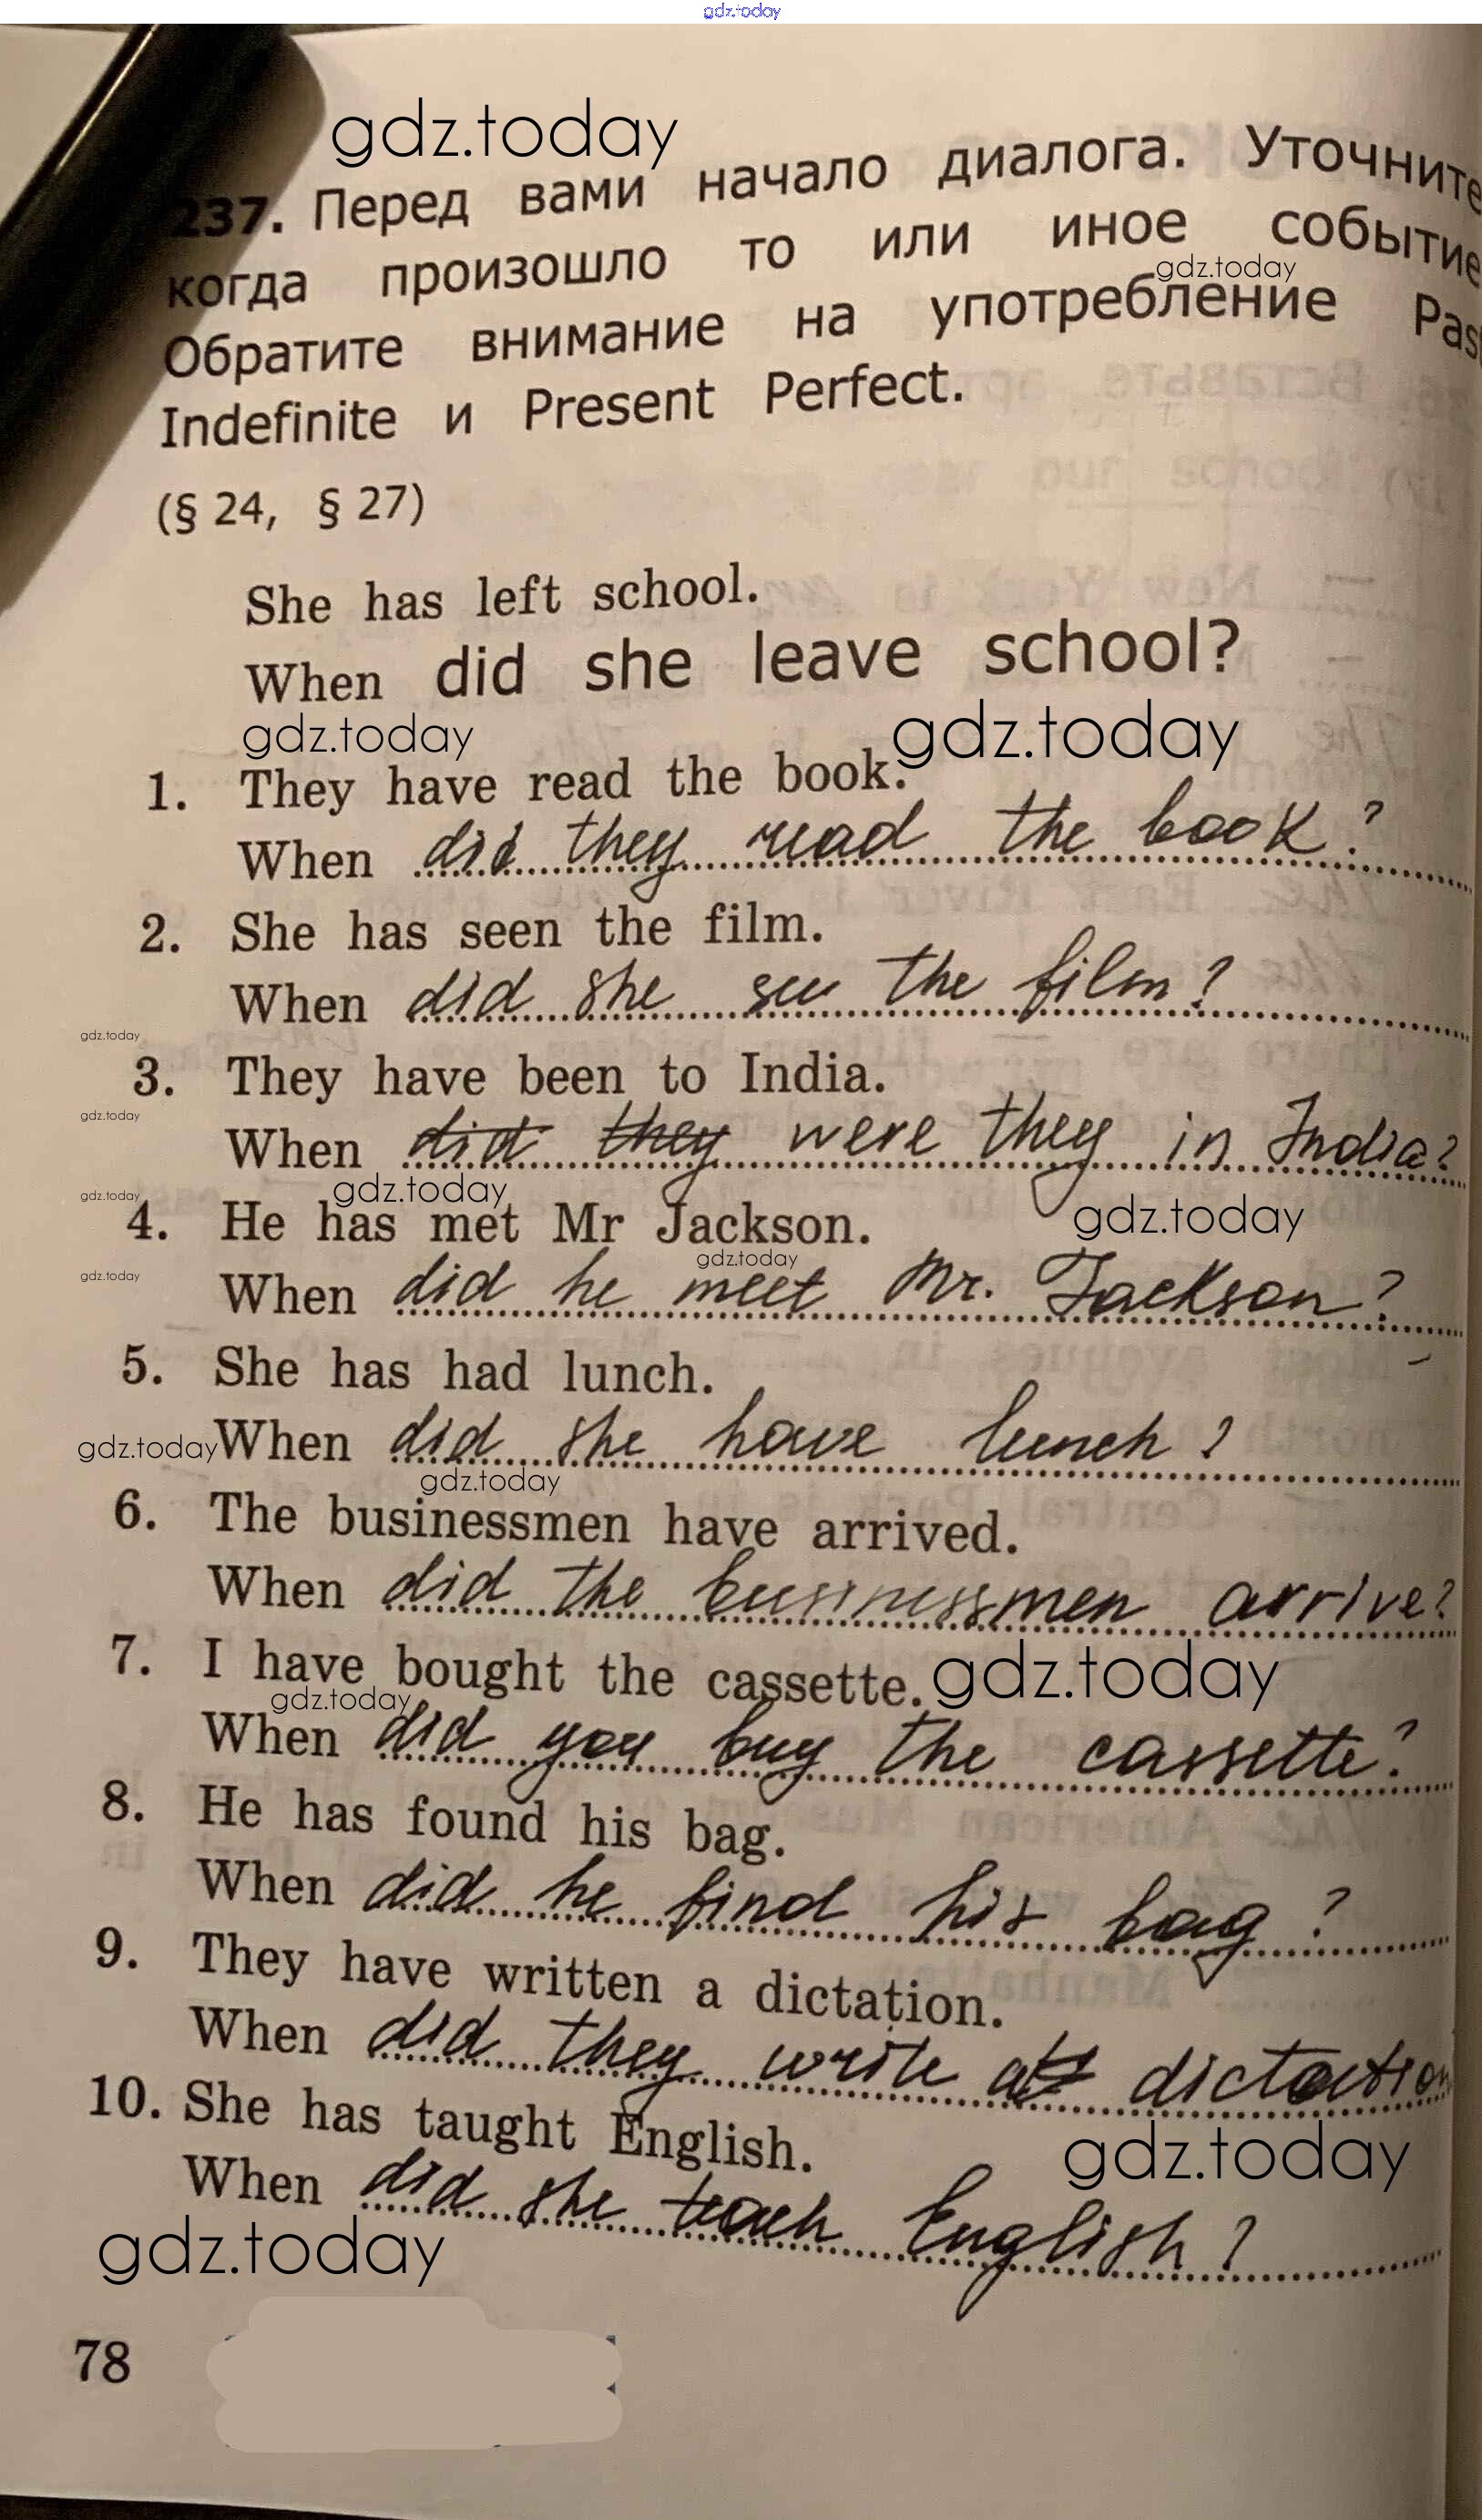 gdz.today
gdz.today
237. Перед вами начало диалога. Уточните
когда произошло то или иное событие
gdz.today
Обратите внимание на употребление Pas
Indefinite и Present Perfect.
(§ 24, § 27)
She has left school.
When did she leave school?
gdz.today gdz.today
1. They have read the book.
When did they read the book?
2. She has seen the film.
When did she see the film?
gdz.today
3. They have been to India.
gdz.today
When did they were they in India?
gdz.today gdz.today
4. He has met Mr Jackson. gdz.today
gdz.today gdz.today
When did he meet Mr. Jackson?
5. She has had lunch.
gdz.today When did she have lunch?
gdz.today
6. The businessmen have arrived.
When did the businessmen arrive?
7. I have bought the cassette. gdz.today
gdz.today
When did you buy the cassette?
8. He has found his bag.
When did he find his bag?
9. They have written a dictation.
When did they write a dictation
10. She has taught English.
gdz.today
When did she teach English?
gdz.today
78